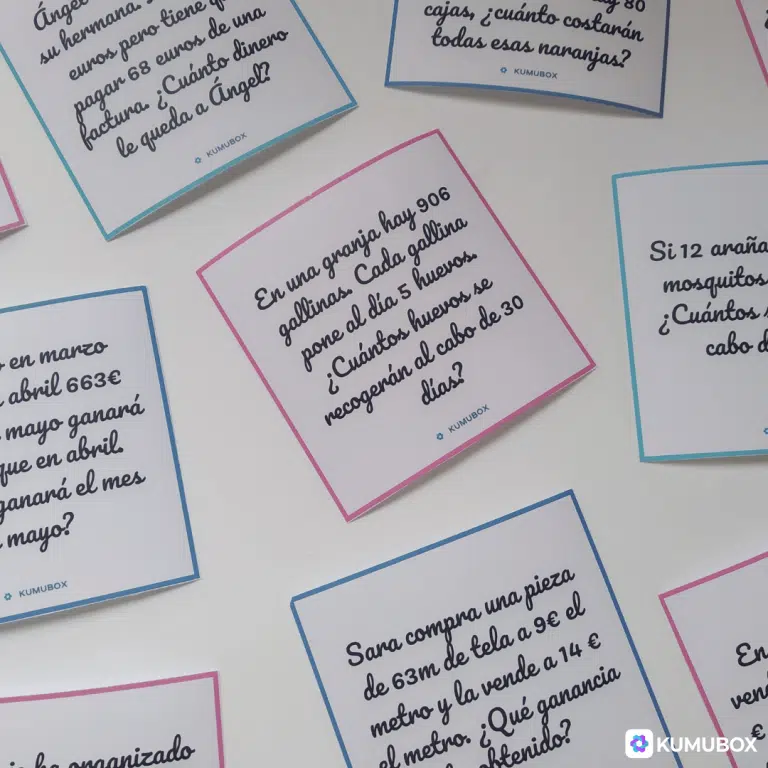 Ángel
su hermana.
euros pero tiene
pagar 68 euros de una
factura. ¿Cuánto dinero
le queda a Ángel?
KUMUBOX
hay 80
cajas, ¿cuánto costarán
todas esas naranjas?
KUMUBOX
En una granja hay 906
gallinas. Cada gallina
pone al día 5 huevos.
¿Cuántos huevos se
recogerán al cabo de 30
días?
KUMUBOX
Si 12 araña
mosquitos
¿Cuántos
cabo d
en marzo
abril 663€
mayo ganará
que en abril.
ganará el mes
mayo?
KUMUBOX
Sara compra una pieza
de 63m de tela a 9€ el
metro y la vende a 14 €
el metro. ¿Qué ganancia
obtenido?
organizado
En
ven
€
KUMUBOX